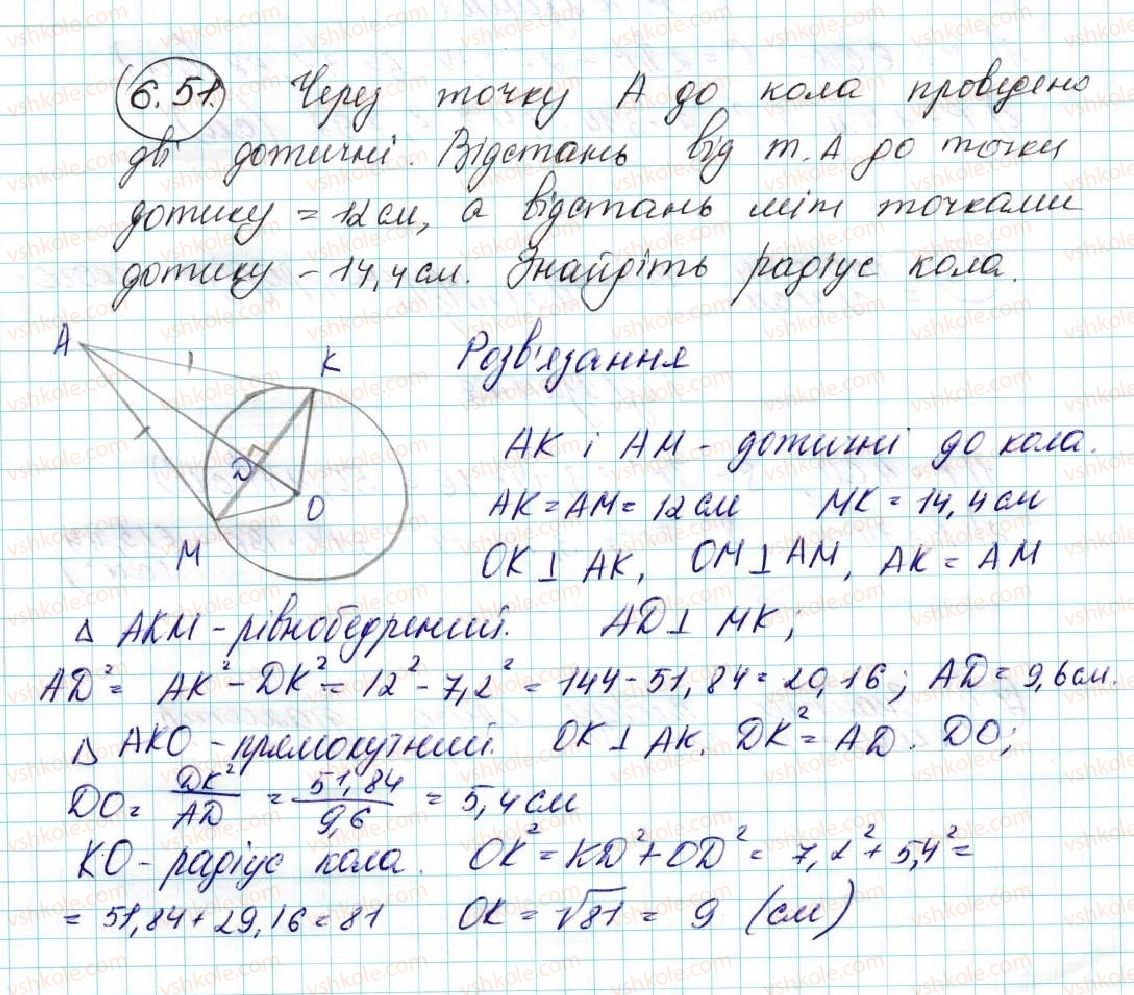 6.51. Через точку А до кола проведено
дві дотичні. Відстань від т. А до точки
дотику = 12 см, а відстань між точками
дотику – 14,4 см. Знайдіть радіус кола.
A
K
D
O
M
Розв'язання
AK і AM – дотичні до кола.
AK = AM = 12 см MK = 14,4 см
OK ⊥ AK, OM ⊥ AM, AK = AM
Δ AKM – рівнобедрений. AD ⊥ MK;
AD² = AK² – DK² = 12² – 7,2² = 144 – 51,84 = 20,16; AD = 9,6 см.
Δ AKO – прямокутний. OK ⊥ AK. DK² = AD · DO;
DO = DK²/AD = 51,84/9,6 = 5,4 см
KO – радіус кола. OK² = KD² + OD² = 7,2² + 5,4² =
= 51,84 + 29,16 = 81 OK = √81 = 9 (см)
vshkole.com